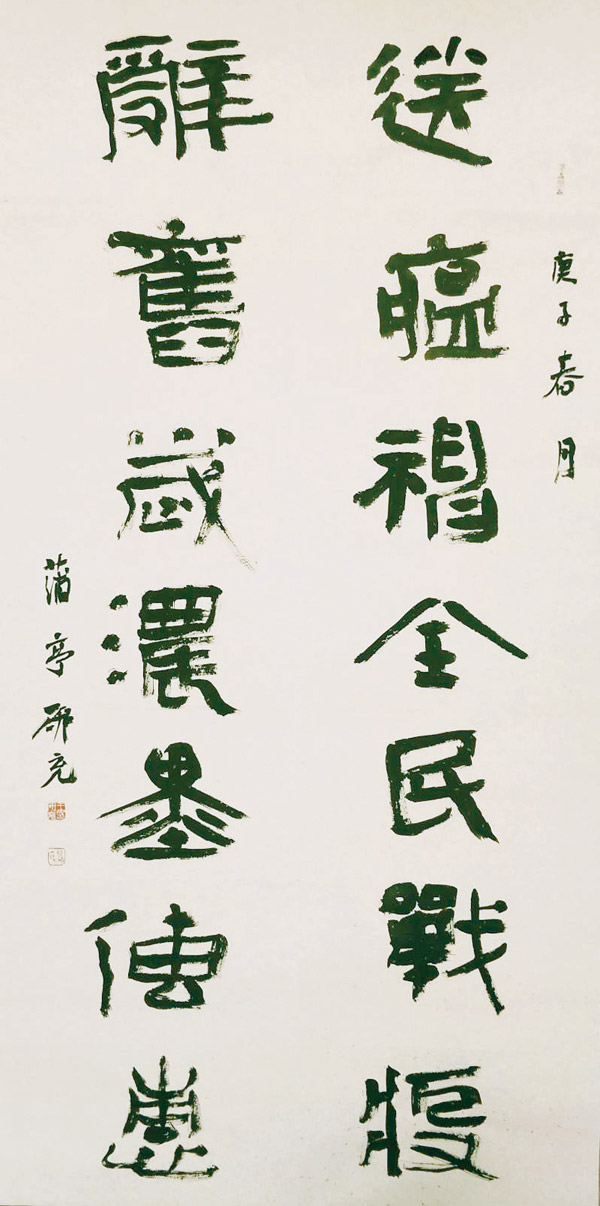 庚子春月
送瘟神全民戰疫
辭舊歲濃墨傳惠
蒲亭研